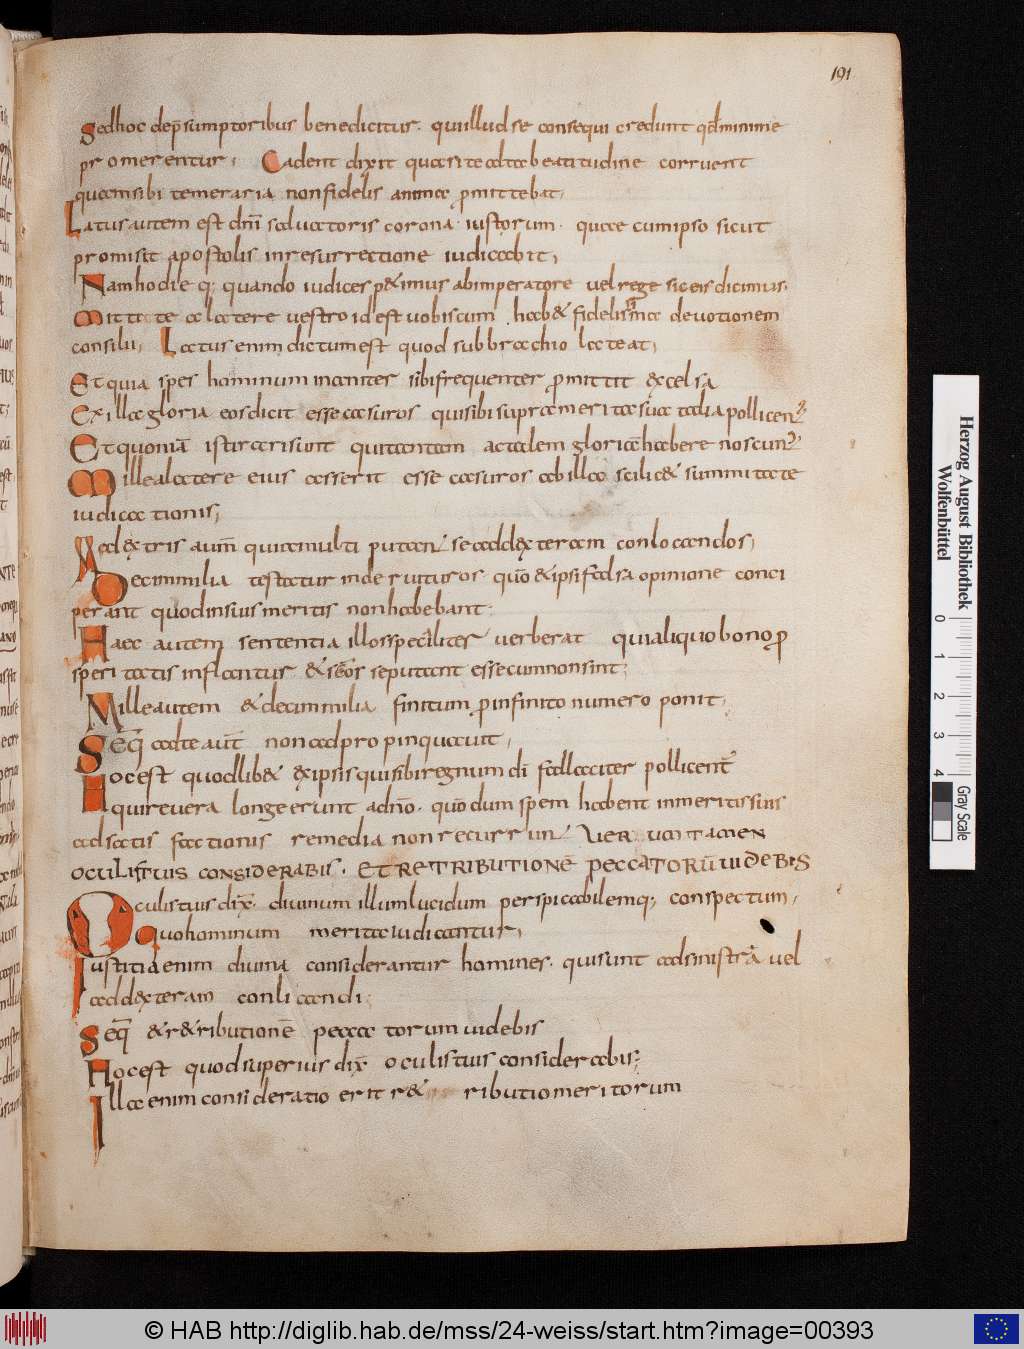 191
Sed hoc dep̄sumptoribus benedicitur. qui illud se consequi credunt qd̄ minime
promerentur; Cadent dixit quasi te adta beatitudine corruent
quam sibi temeraria non fidelis animae p̄mittebat;
Latus autem est dn̄i saluatoris corona iustorum. quae cum ipso sicut
promisit apostolis in resurrectione iudicabit;
Nam hodie q; quando iudices petimus ab imperatore uel rege si eis dicimus.
mittite a latere uestro id est uobiscum habet fidelissimae deuotionem
consilii; Latus enim dictum est quod sub brachio lateat;
Et quia spes hominum inaniter sibi frequenter p̄mittit excelsa
Ex illa gloria eos dicit esse casuros qui sibi supra merita sua talia pollicent̄
Et quoniā isti rari sunt qui tantam ac talem gloriā habere noscunt̄
Mille a latere eius asserit esse casuros ab illa scilicet summitate
iudicationis;
A dextris aut̄ quia multi putant se ad dexteram conlocandos;
Decim milia testatur inde ruituros quō et ipsi falsa opinione conci
perant quod in suis meritis non habebant;
Haec autem sententia illos specialiter uerberat qui aliquo bono p̄
speritatis inflantur et sc̄os se putant esse cum non sint;
Mille autem et decim milia finitum p̄ infinito numero ponit;
Seq̄ ad te aut̄ non adpropinquauit;
Hoc est quodlibet ex ipsis qui sibi regnum dī fallaciter pollicent̄
qui reuera longe erunt a dn̄o. quō dum spem habent in meritis suis
ad satisfactionis remedia non recurrunt UERUMTAMEN
OCULIS TUIS CONSIDERABIS. ET RETRIBUTIONĒ PECCATORŪ UIDEBIS
Oculis tuis dix̄. diuinum illum lucidum perspicabilemq; conspectum;
quo hominum merita iudicantur;
Iustitia enim diuina considerantur homines. qui sunt ad sinistrā uel
ad dexteram conlicandi;
Seq̄ et retributionē peccatorum uidebis
Hoc est quod superius dix̄ oculis tuis considerabis;
Illa enim consideratio erit retributio meritorum
Herzog August Bibliothek
Wolfenbüttel
0 1 2 3 4
Gray Scale
© HAB http://diglib.hab.de/mss/24-weiss/start.htm?image=00393